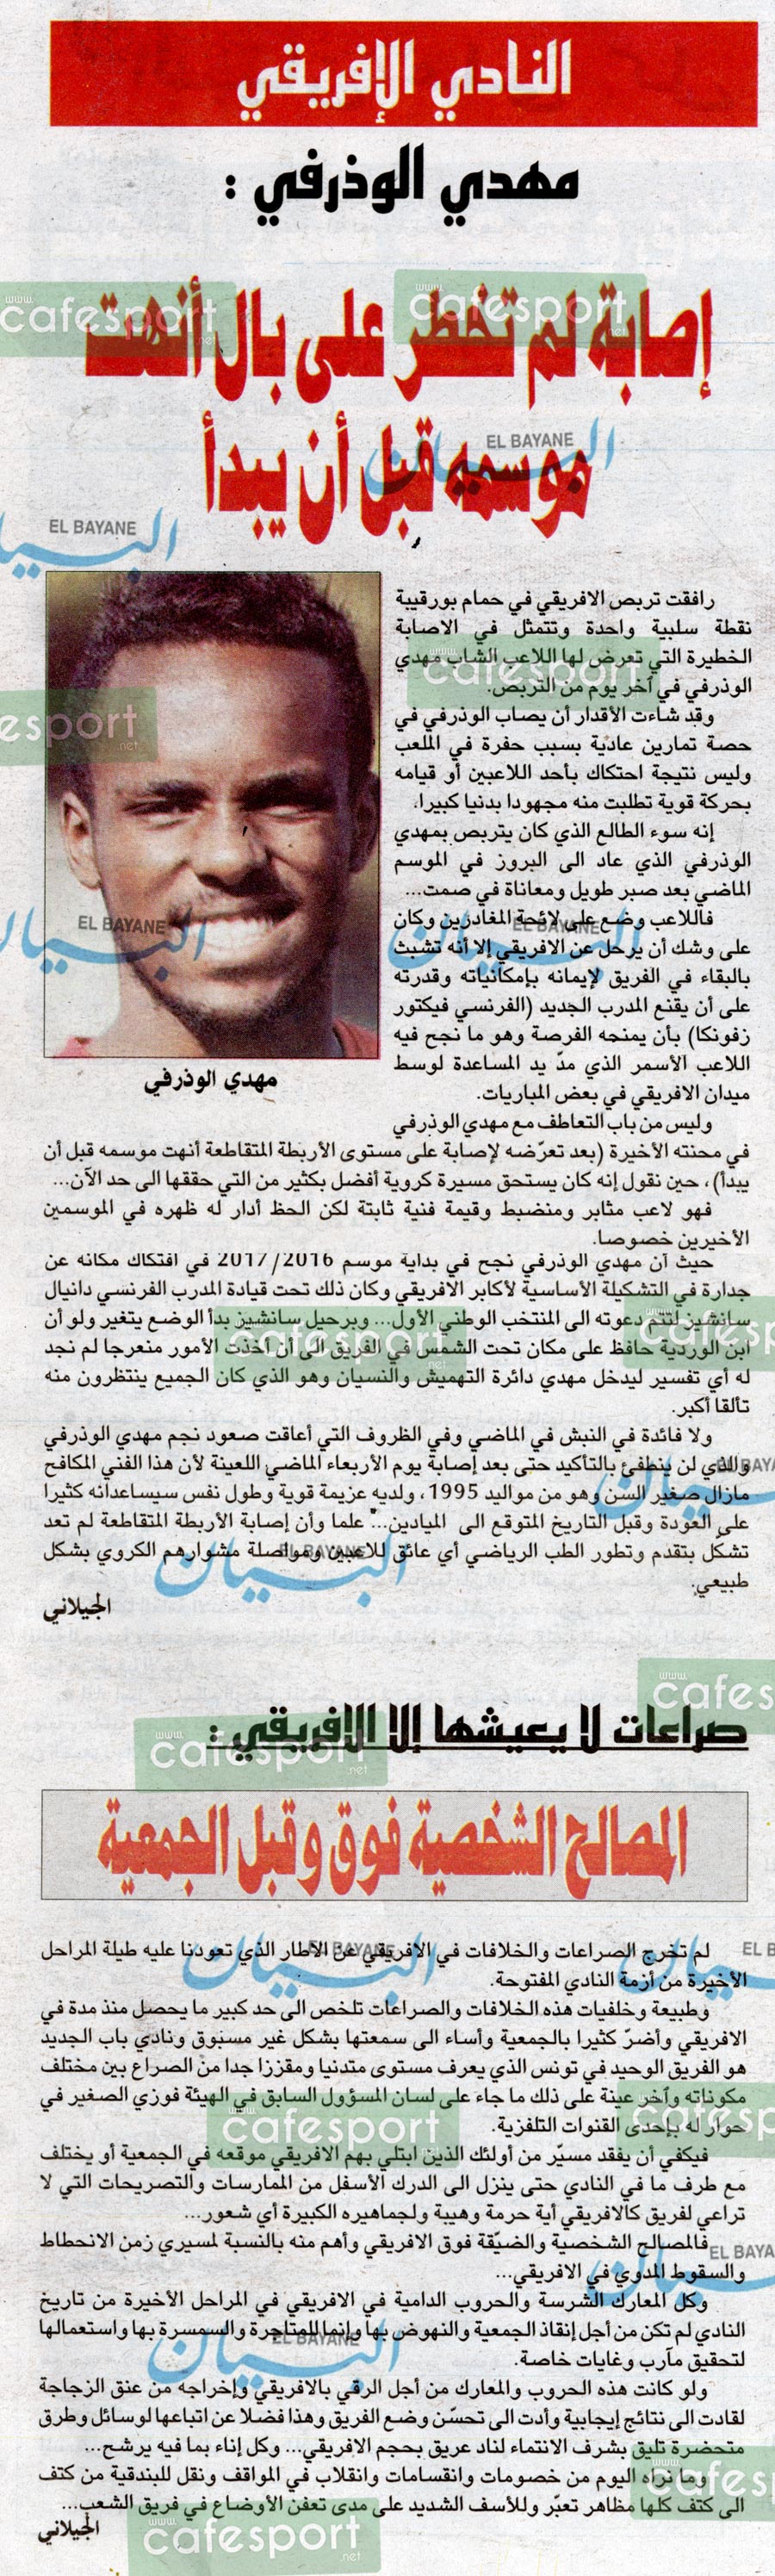 النادي الإفريقي
مهدي الوذرفي :
إصابة لم تخطر على بال أنهت
موسمه قبل أن يبدأ
رافقت تربص الافريقي في حمام بورقيبة
نقطة سلبية واحدة وتتمثل في الاصابة
الخطيرة التي تعرض لها اللاعب الشاب مهدي
الوذرفي في آخر يوم من التربص.
وقد شاءت الأقدار أن يصاب الوذرفي في
حصة تمارين عادية بسبب حفرة في الملعب
وليس نتيجة احتكاك بأحد اللاعبين أو قيامه
بحركة قوية تطلبت منه مجهودا بدنيا كبيرا.
إنه سوء الطالع الذي كان يتربص بمهدي
الوذرفي الذي عاد الى البروز في الموسم
الماضي بعد صبر طويل ومعاناة في صمت...
فاللاعب وضع على لائحة المغادرين وكان
على وشك أن يرحل عن الافريقي إلا أنه تشبث
بالبقاء في الفريق لإيمانه بإمكانياته وقدرته
على أن يقنع المدرب الجديد (الفرنسي فيكتور
زفونكا) بأن يمنحه الفرصة وهو ما نجح فيه
اللاعب الأسمر الذي مدّ يد المساعدة لوسط
ميدان الافريقي في بعض المباريات.
مهدي الوذرفي
وليس من باب التعاطف مع مهدي الوذرفي
في محنته الأخيرة (بعد تعرّضه لإصابة على مستوى الأربطة المتقاطعة أنهت موسمه قبل أن
يبدأ)، حين نقول إنه كان يستحق مسيرة كروية أفضل بكثير من التي حققها الى حد الآن...
فهو لاعب مثابر ومنضبط وقيمة فنية ثابتة لكن الحظ أدار له ظهره في الموسمين
الأخيرين خصوصا.
حيث أن مهدي الوذرفي نجح في بداية موسم 2017/2016 في افتكاك مكانه عن
جدارة في التشكيلة الأساسية لأكابر الافريقي وكان ذلك تحت قيادة المدرب الفرنسي دانيال
سانشيز لتتم دعوته الى المنتخب الوطني الأول... وبرحيل سانشيز بدأ الوضع يتغير ولو أن
ابن الوردية حافظ على مكان تحت الشمس في الفريق الى أن أخذت الأمور منعرجا لم نجد
له أي تفسير ليدخل مهدي دائرة التهميش والنسيان وهو الذي كان الجميع ينتظرون منه
تألقا أكبر.
ولا فائدة في النبش في الماضي وفي الظروف التي أعاقت صعود نجم مهدي الوذرفي
والذي لن ينطفئ بالتأكيد حتى بعد إصابة يوم الأربعاء الماضي اللعينة لأن هذا الفني المكافح
مازال صغير السن وهو من مواليد 1995، ولديه عزيمة قوية وطول نفس سيساعدانه كثيرا
على العودة وقبل التاريخ المتوقع الى الميادين... علما وأن إصابة الأربطة المتقاطعة لم تعد
تشكّل بتقدم وتطور الطب الرياضي أي عائق للاعبين ومواصلة مشوارهم الكروي بشكل
طبيعي.
الجيلاني
صراعات لا يعيشها إلا الإفريقي :
المصالح الشخصية فوق وقبل الجمعية
لم تخرج الصراعات والخلافات في الافريقي عن الاطار الذي تعودنا عليه طيلة المراحل
الأخيرة من أزمة النادي المفتوحة.
وطبيعة وخلفيات هذه الخلافات والصراعات تلخص الى حد كبير ما يحصل منذ مدة في
الافريقي وأضرّ كثيرا بالجمعية وأساء الى سمعتها بشكل غير مسبوق ونادي باب الجديد
هو الفريق الوحيد في تونس الذي يعرف مستوى متدنيا ومقززا جدا من الصراع بين مختلف
مكوناته وآخر عينة على ذلك ما جاء على لسان المسؤول السابق في الهيئة فوزي الصغير في
حوار له بإحدى القنوات التلفزية.
فيكفي أن يفقد مسيّر من أولئك الذين ابتلي بهم الافريقي موقعه في الجمعية أو يختلف
مع طرف ما في النادي حتى ينزل الى الدرك الأسفل من الممارسات والتصريحات التي لا
تراعي لفريق كالافريقي أية حرمة وهيبة ولجماهيره الكبيرة أي شعور...
فالمصالح الشخصية والضيّقة فوق الافريقي وأهم منه بالنسبة لمسيري زمن الانحطاط
والسقوط المدوي في الافريقي...
وكل المعارك الشرسة والحروب الدامية في الافريقي في المراحل الأخيرة من تاريخ
النادي لم تكن من أجل إنقاذ الجمعية والنهوض بها وإنما للمتاجرة والسمسرة بها واستعمالها
لتحقيق مآرب وغايات خاصة.
ولو كانت هذه الحروب والمعارك من أجل الرقي بالافريقي وإخراجه من عنق الزجاجة
لقادت الى نتائج إيجابية وأدت الى تحسّن وضع الفريق وهذا فضلا عن اتباعها لوسائل وطرق
متحضرة تليق بشرف الانتماء لناد عريق بحجم الافريقي... وكل إناء بما فيه يرشح...
وما نراه اليوم من خصومات وانقسامات وانقلاب في المواقف ونقل للبندقية من كتف
الى كتف كلها مظاهر تعبّر وللأسف الشديد على مدى تعفن الأوضاع في فريق الشعب...
الجيلاني